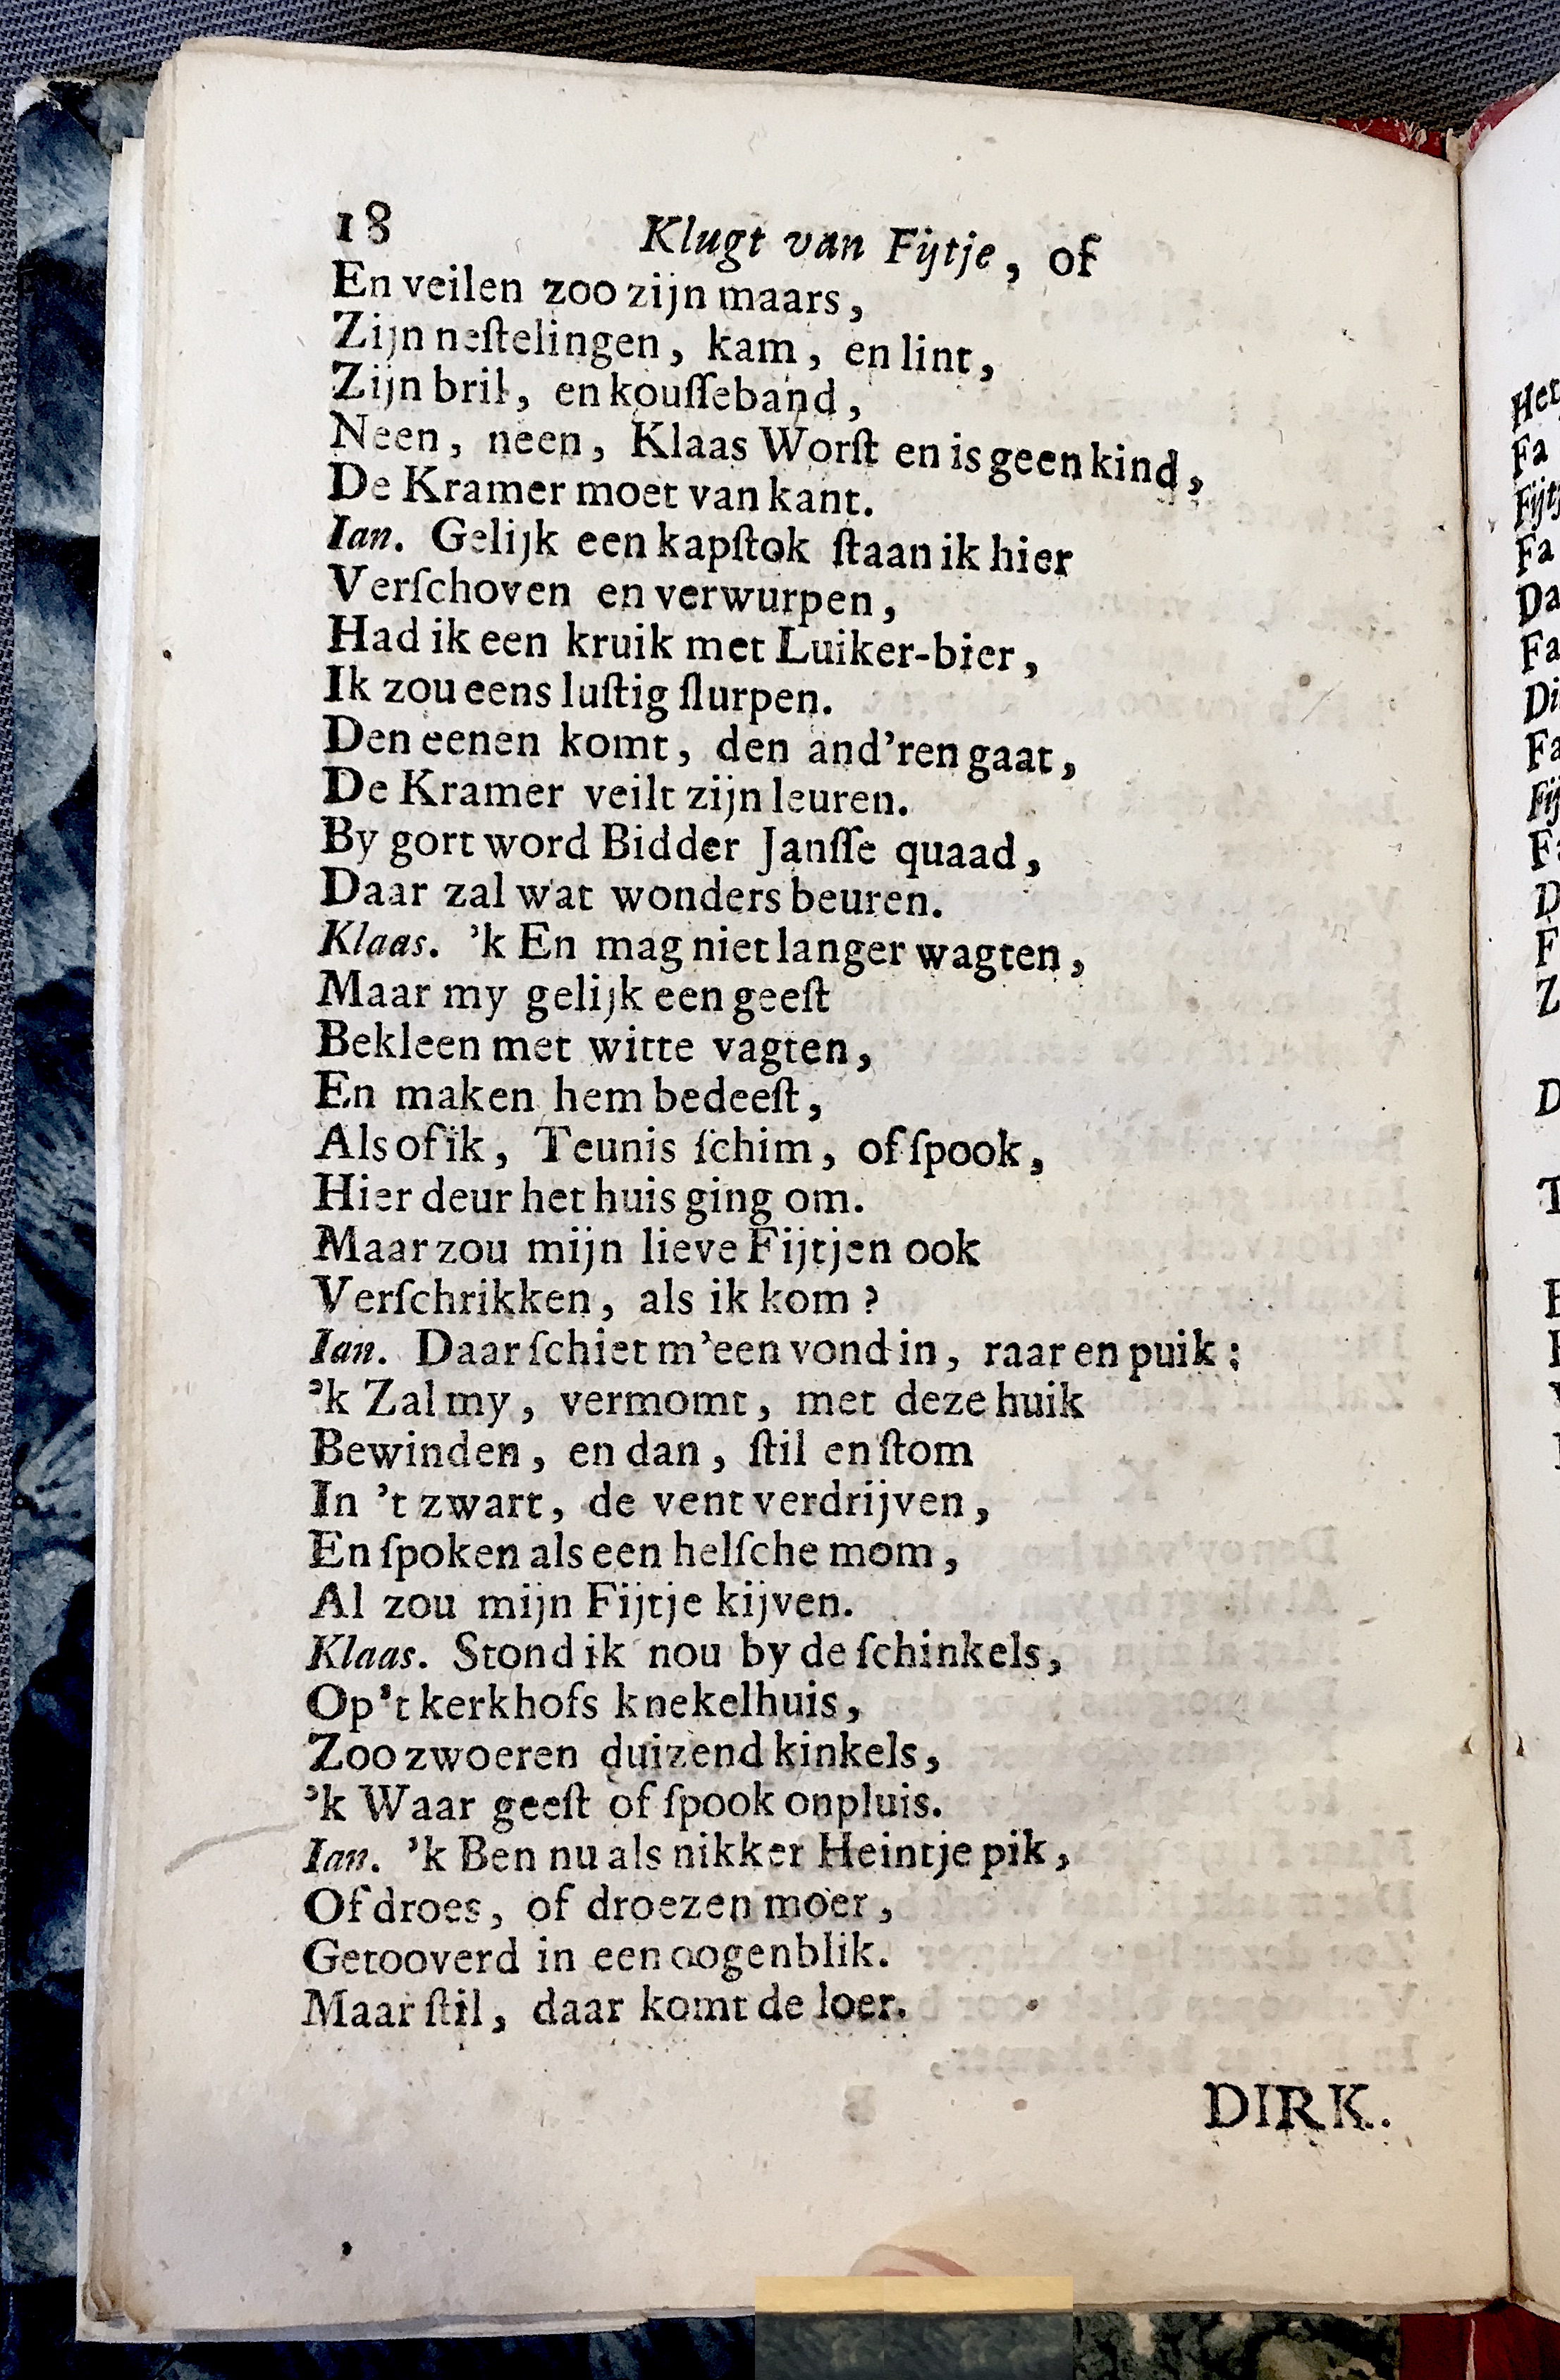 18 Klugt van Fijtje, of
En veilen zoo zijn maars,
Zijn neſtelingen, kam, en lint,
Zijn bril, en kouſſeband,
Neen, neen, Klaas Worſt en is geen kind,
De Kramer moet van kant.
Ian. Gelijk een kapſtok ſtaan ik hier
Verſchoven en verwurpen,
Had ik een kruik met Luiker-bier,
Ik zou eens luſtig ſlurpen.
Den eenen komt, den and'ren gaat,
De Kramer veilt zijn leuren.
By gort word Bidder Janſſe quaad,
Daar zal wat wonders beuren.
Klaas. 'k En mag niet langer wagten,
Maar my gelijk een geeſt
Bekleen met witte vagten,
En maken hem bedeeſt,
Als of ik, Teunis ſchim, of ſpook,
Hier deur het huis ging om.
Maar zou mijn lieve Fijtjen ook
Verſchrikken, als ik kom?
Ian. Daar ſchiet m'een vond in, raar en puik:
'k Zal my, vermomt, met deze huik
Bewinden, en dan, ſtil en ſtom
In 't zwart, de vent verdrijven,
En ſpoken als een helſche mom,
Al zou mijn Fijtje kijven.
Klaas. Stond ik nou by de ſchinkels,
Op 't kerkhofs knekelhuis,
Zoo zwoeren duizend kinkels,
'k Waar geeſt of ſpook onpluis.
Ian. 'k Ben nu als nikker Heintje pik,
Of droes, of droezen moer,
Getooverd in een oogenblik.
Maar ſtil, daar komt de loer.
DIRK.
Fa
Fa
Da
Fa
Di
Fa